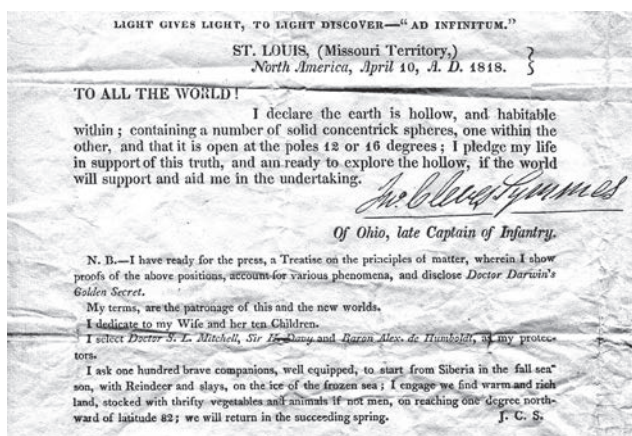 LIGHT GIVES LIGHT, TO LIGHT DISCOVER—"AD INFINITUM."
ST. LOUIS, (Missouri Territory,)
North America, April 10, A. D. 1818.
TO ALL THE WORLD!
I declare the earth is hollow, and habitable
within; containing a number of solid concentrick spheres, one within the
other, and that it is open at the poles 12 or 16 degrees; I pledge my life
in support of this truth, and am ready to explore the hollow, if the world
will support and aid me in the undertaking.
Jno. Cleves Symmes
Of Ohio, late Captain of Infantry.
N. B.—I have ready for the press, a Treatise on the principles of matter, wherein I show
proofs of the above positions, account for various phenomena, and disclose Doctor Darwin's
Golden Secret.
My terms, are the patronage of this and the new worlds.
I dedicate to my Wife and her ten Children.
I select Doctor S. L. Mitchell, Sir H. Davy and Baron Alex. de Humboldt, as my protec-
tors.
I ask one hundred brave companions, well equipped, to start from Siberia in the fall sea-
son, with Reindeer and slays, on the ice of the frozen sea; I engage we find warm and rich
land, stocked with thrifty vegetables and animals if not men, on reaching one degree north-
ward of latitude 82; we will return in the succeeding spring. J. C. S.